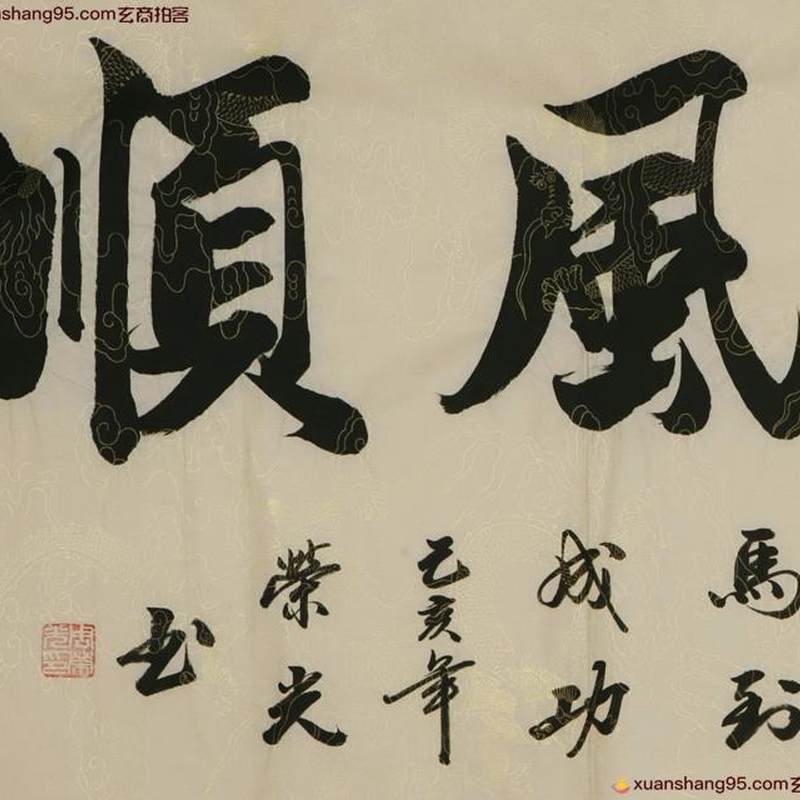 anshang95.com玄商拍客
風順
馬到
成功
己亥年
榮光
书
xuanshang95.com玄